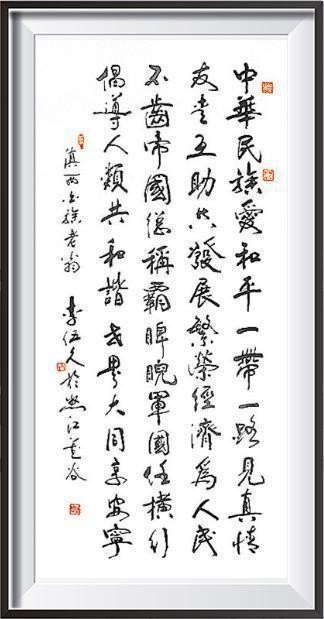 中華民族愛和平一帶一路見真情
友互助共發展繁榮經濟為人民
不齒帝國總稱霸睥睨軍國任橫行
倡導人類共和諧大同享安寧
滇西白族老翁
李伍久於怒江谷